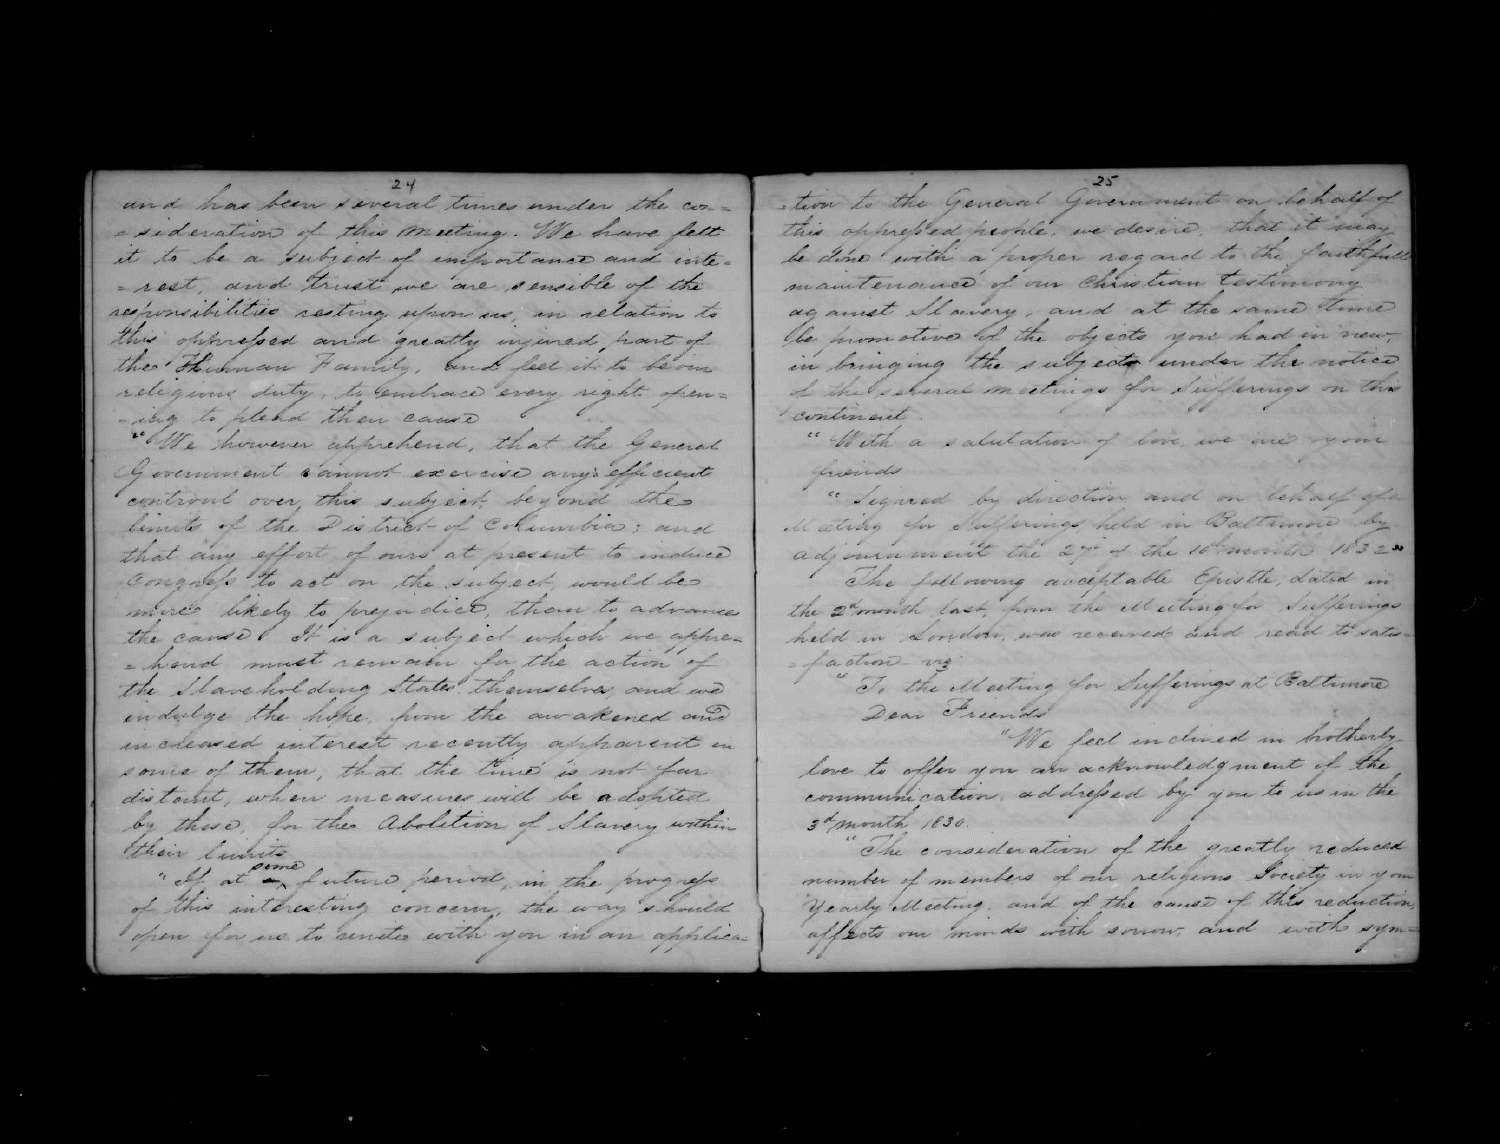 24
and has been several times under the con=
=sideration of this meeting. We have felt
it to be a subject of importance and inte=
=rest, and trust we are sensible of the
responsibilities resting upon us, in relation to
this oppressed and greatly injured part of
the Human Family, and feel it to be our
religious duty, to embrace every right open=
=ing to plead their cause
"We however apprehend, that the General
Government cannot exercise any efficient
controul over this subject, beyond the
limits of the District of Columbia; and
that any effort of ours at present to induce
Congress to act on the subject, would be
more likely to prejudice, than to advance
the cause. It is a subject which we appre=
=hend must remain for the action of
the Slaveholding States themselves, and we
indulge the hope, from the awakened and
increased interest recently apparent in
some of them, that the time is not far
distant, when measures will be adopted
by these, for the Abolition of Slavery within
their limits
some
"If at future period, in the progress
of this interesting concern, the way should
open for us to unite with you in an applica=
25
=tion to the General Government on behalf of
this oppressed people, we desire, that it may
be done with a proper regard to the faithfull
maintenance of our Christian testimony
against Slavery, and at the same time
be promotive of the objects you had in view,
in bringing the subject under the notice
of the several meetings for Sufferings on this
continent.
"With a salutation of love we are your
friends
"Signed by direction and on behalf of a
Meeting for Sufferings held in Baltimore by
adjournment the 27th of the 10th month 1832"
The following acceptable Epistle, dated in
the 2d month last, from the Meeting for Sufferings
held in London, was received and read to satis=
=faction viz
"To the Meeting for Sufferings at Baltimore
Dear Friends
"We feel inclined in brotherly
love to offer you an acknowledgment of the
communication, addressed by you to us in the
3d month 1830.
"The consideration of the greatly reduced
number of members of our religious Society in your
Yearly Meeting, and of the cause of this reduction,
affects our minds with sorrow, and with sym=